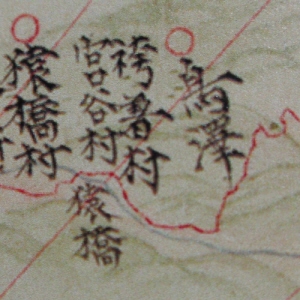 鳥澤
袴着村
宮谷村
猿橋
猿橋村